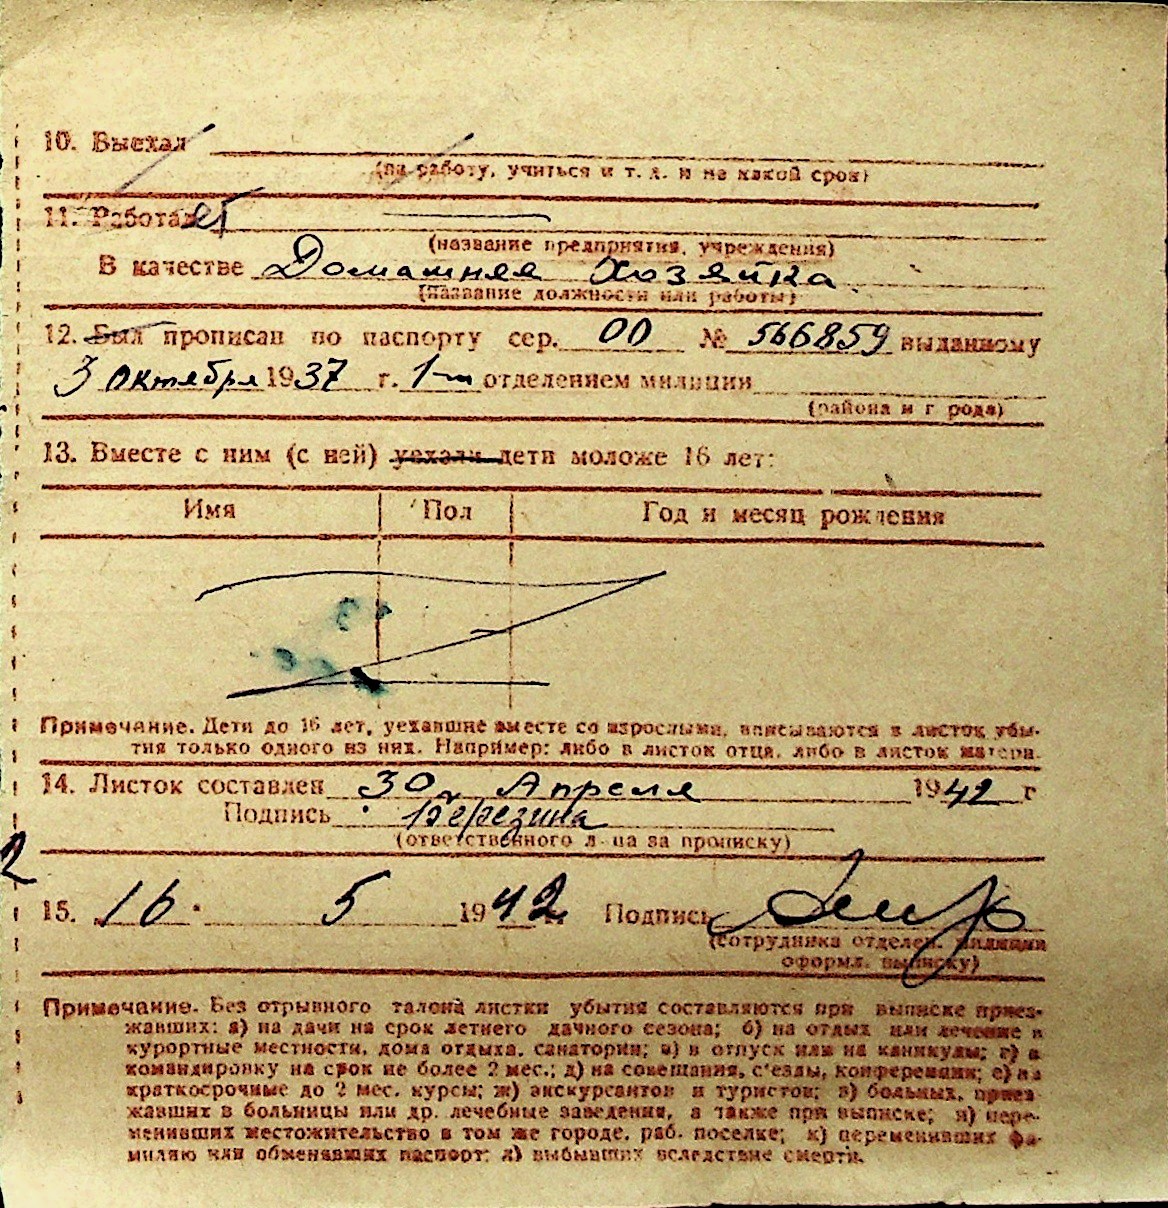 10. Выехал
(на работу, учиться и т. д. и на какой срок)
11. Работает
(название предприятия, учреждения)
В качестве Домашняя Хозяйка
(название должности или работы)
12. Был прописан по паспорту сер. 00 № 566859 выданному
3 октября 1937 г. 1-м отделением милиции
(района и г рода)
13. Вместе с ним (с ней) уехали дети моложе 16 лет:
Имя Пол Год и месяц рождения
Примечание. Дети до 16 лет, уехавшие вместе со взрослыми, вписываются в листок убы-
тия только одного из них. Например: либо в листок отца, либо в листок матери.
14. Листок составлен 30 Апреля 1942 г
Подпись Березина
(ответственного л-ца за прописку)
2
15. 16 5 1942 г. Подпись
(сотрудника отделен. милиции
оформл. выписку)
Примечание. Без отрывного талона листки убытия составляются при выписке приез-
жавших: а) на дачи на срок летнего дачного сезона; б) на отдых или лечение в
курортные местности, дома отдыха, санатории; в) в отпуск или на каникулы; г) в
командировку на срок не более 2 мес.; д) на совещания, с'езды, конференции; е) на
краткосрочные до 2 мес. курсы; ж) экскурсантов и туристов; з) больных, приез
жавших в больницы или др. лечебные заведения, а также при выписке; и) пере-
менивших местожительство в том же городе, раб. поселке; к) переменивших фа-
милию или обменявших паспорт; л) выбывших вследствие смерти.